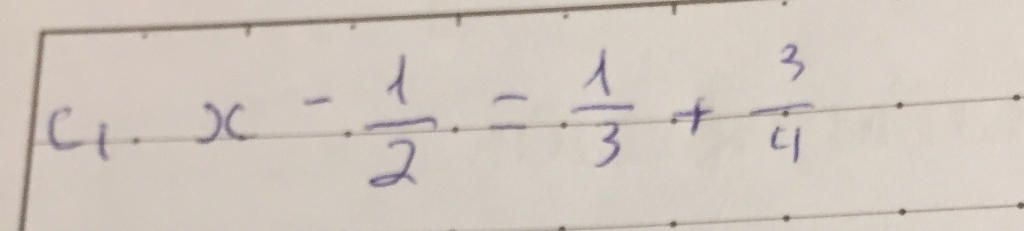 c, x - 1/2 = 1/3 + 3/4